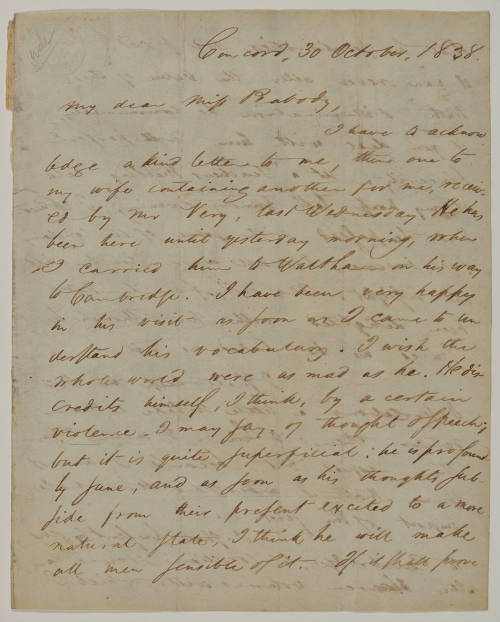 Concord, 30 October, 1838.
My dear Miss Peabody,
I have to acknow
ledge a kind letter to me, then one to
my wife containing another for me, receiv-
ed by Mr Very, last Wednesday. He has
been here until yesterday morning, when
I carried him to Waltham on his way
to Cambridge. I have been very happy
in his visit as soon as I came to un
derstand his vocabulary. I wish the
whole world were as mad as he. He dis
credits himself, I think, by a certain
violence I may say of thought & speech;
but it is quite superficial: he is profound
ly sane, and as soon as his thoughts sub-
side from their present excited to a more
natural state, I think he will make
all men sensible of it. If it shall prove